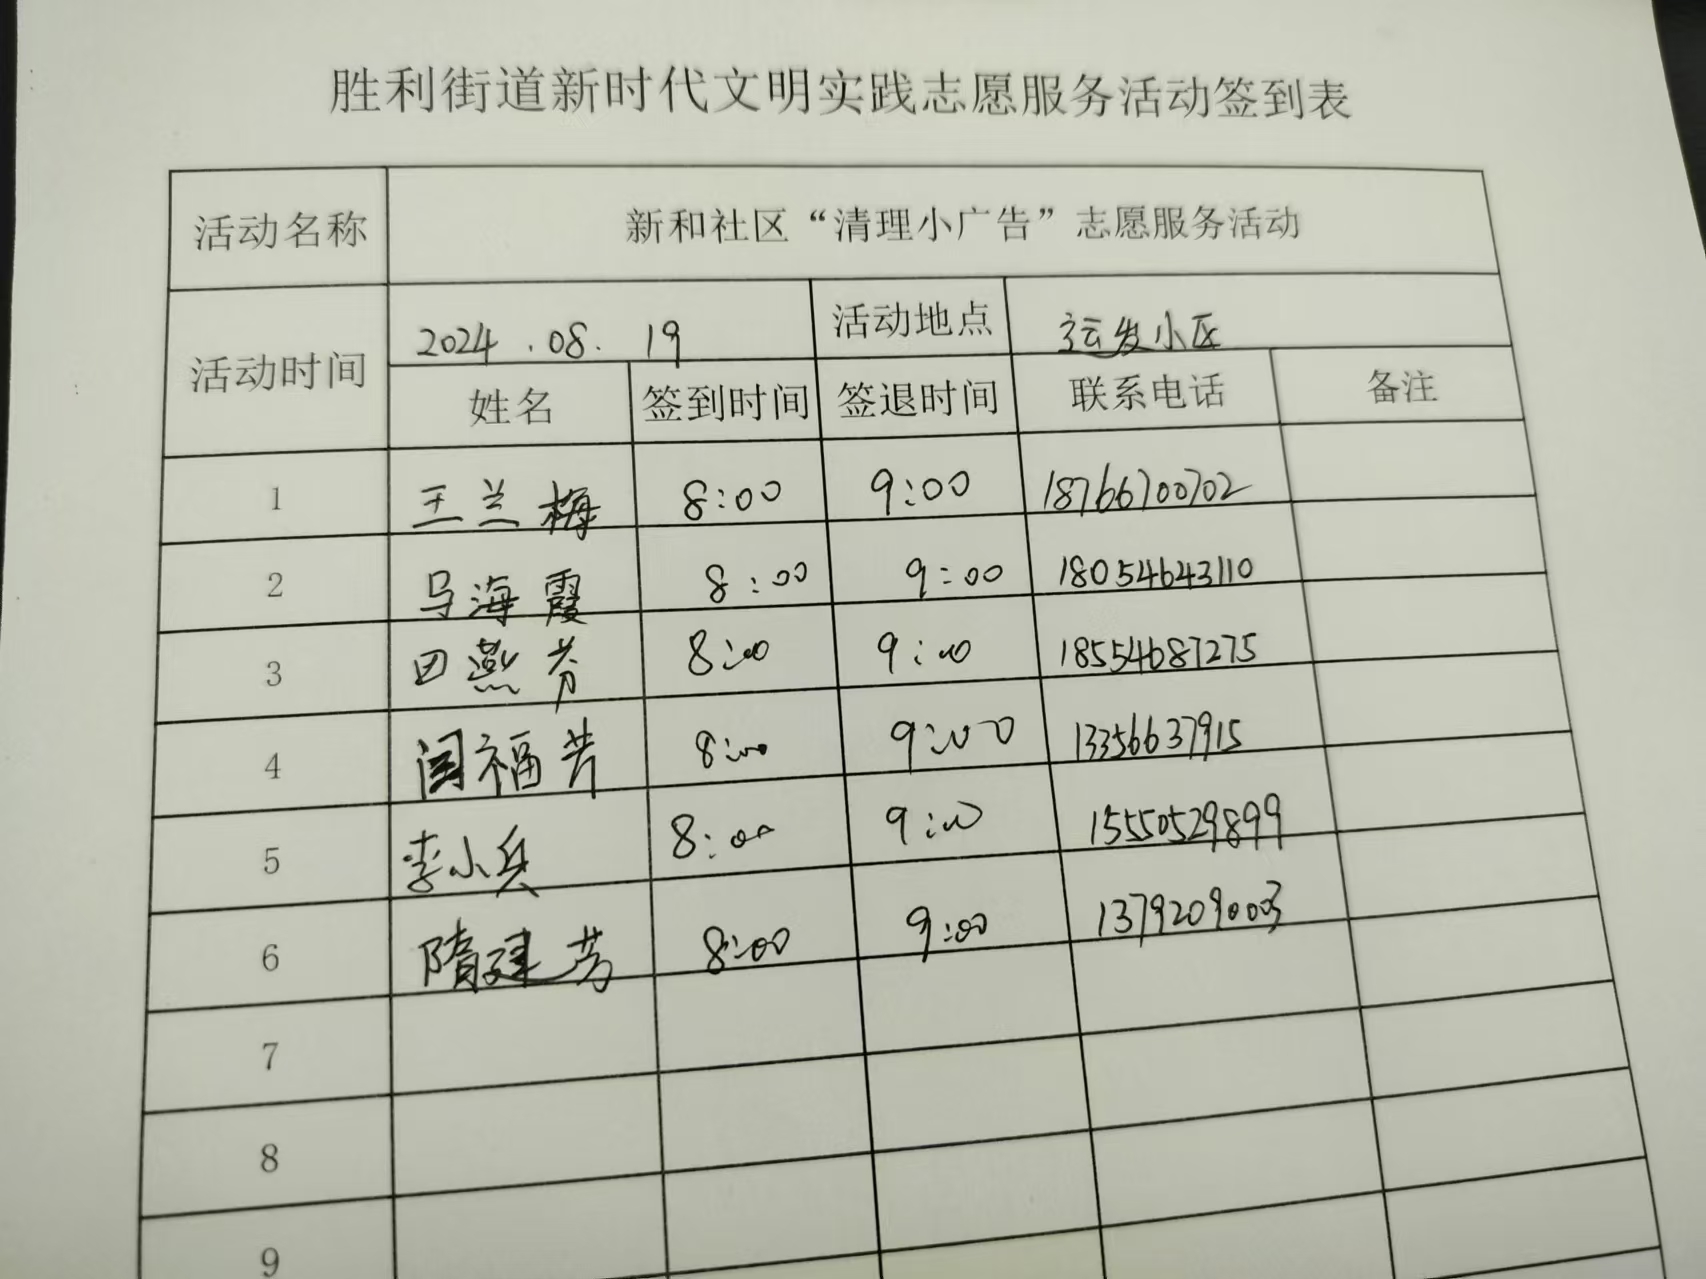 胜利街道新时代文明实践志愿服务活动签到表
活动名称 新和社区“清理小广告”志愿服务活动
活动时间 2024.08.19 活动地点 运发小区
姓名 签到时间 签退时间 联系电话 备注
1 王兰梅 8:00 9:00 18766700702
2 马海霞 8:00 9:00 18054643110
3 田燕芬 8:00 9:00 18554687275
4 闫福芳 8:00 9:00 13356637915
5 李小兵 8:00 9:00 15550529899
6 隋建芳 8:00 9:00 13792090003
7
8
9